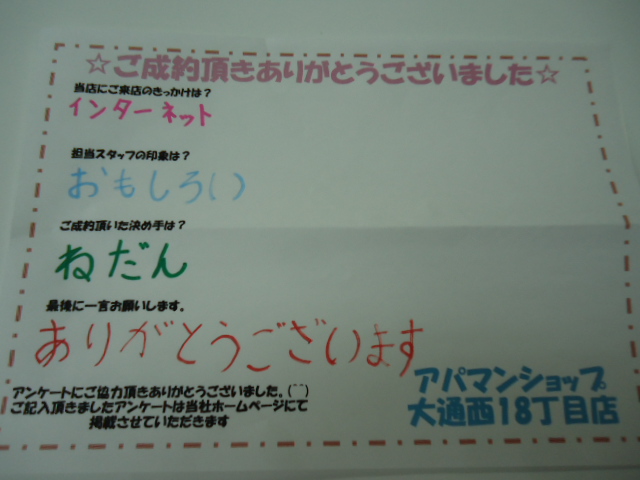 ☆ご成約頂きありがとうございました☆
当店にご来店のきっかけは？
インターネット
担当スタッフの印象は？
おもしろい
ご成約頂いた決め手は？
ねだん
最後に一言お願いします。
ありがとうございます
アンケートにご協力頂きありがとうございました。(^^)
ご記入頂きましたアンケートは当社ホームページにて
掲載させていただきます
アパマンショップ
大通西18丁目店